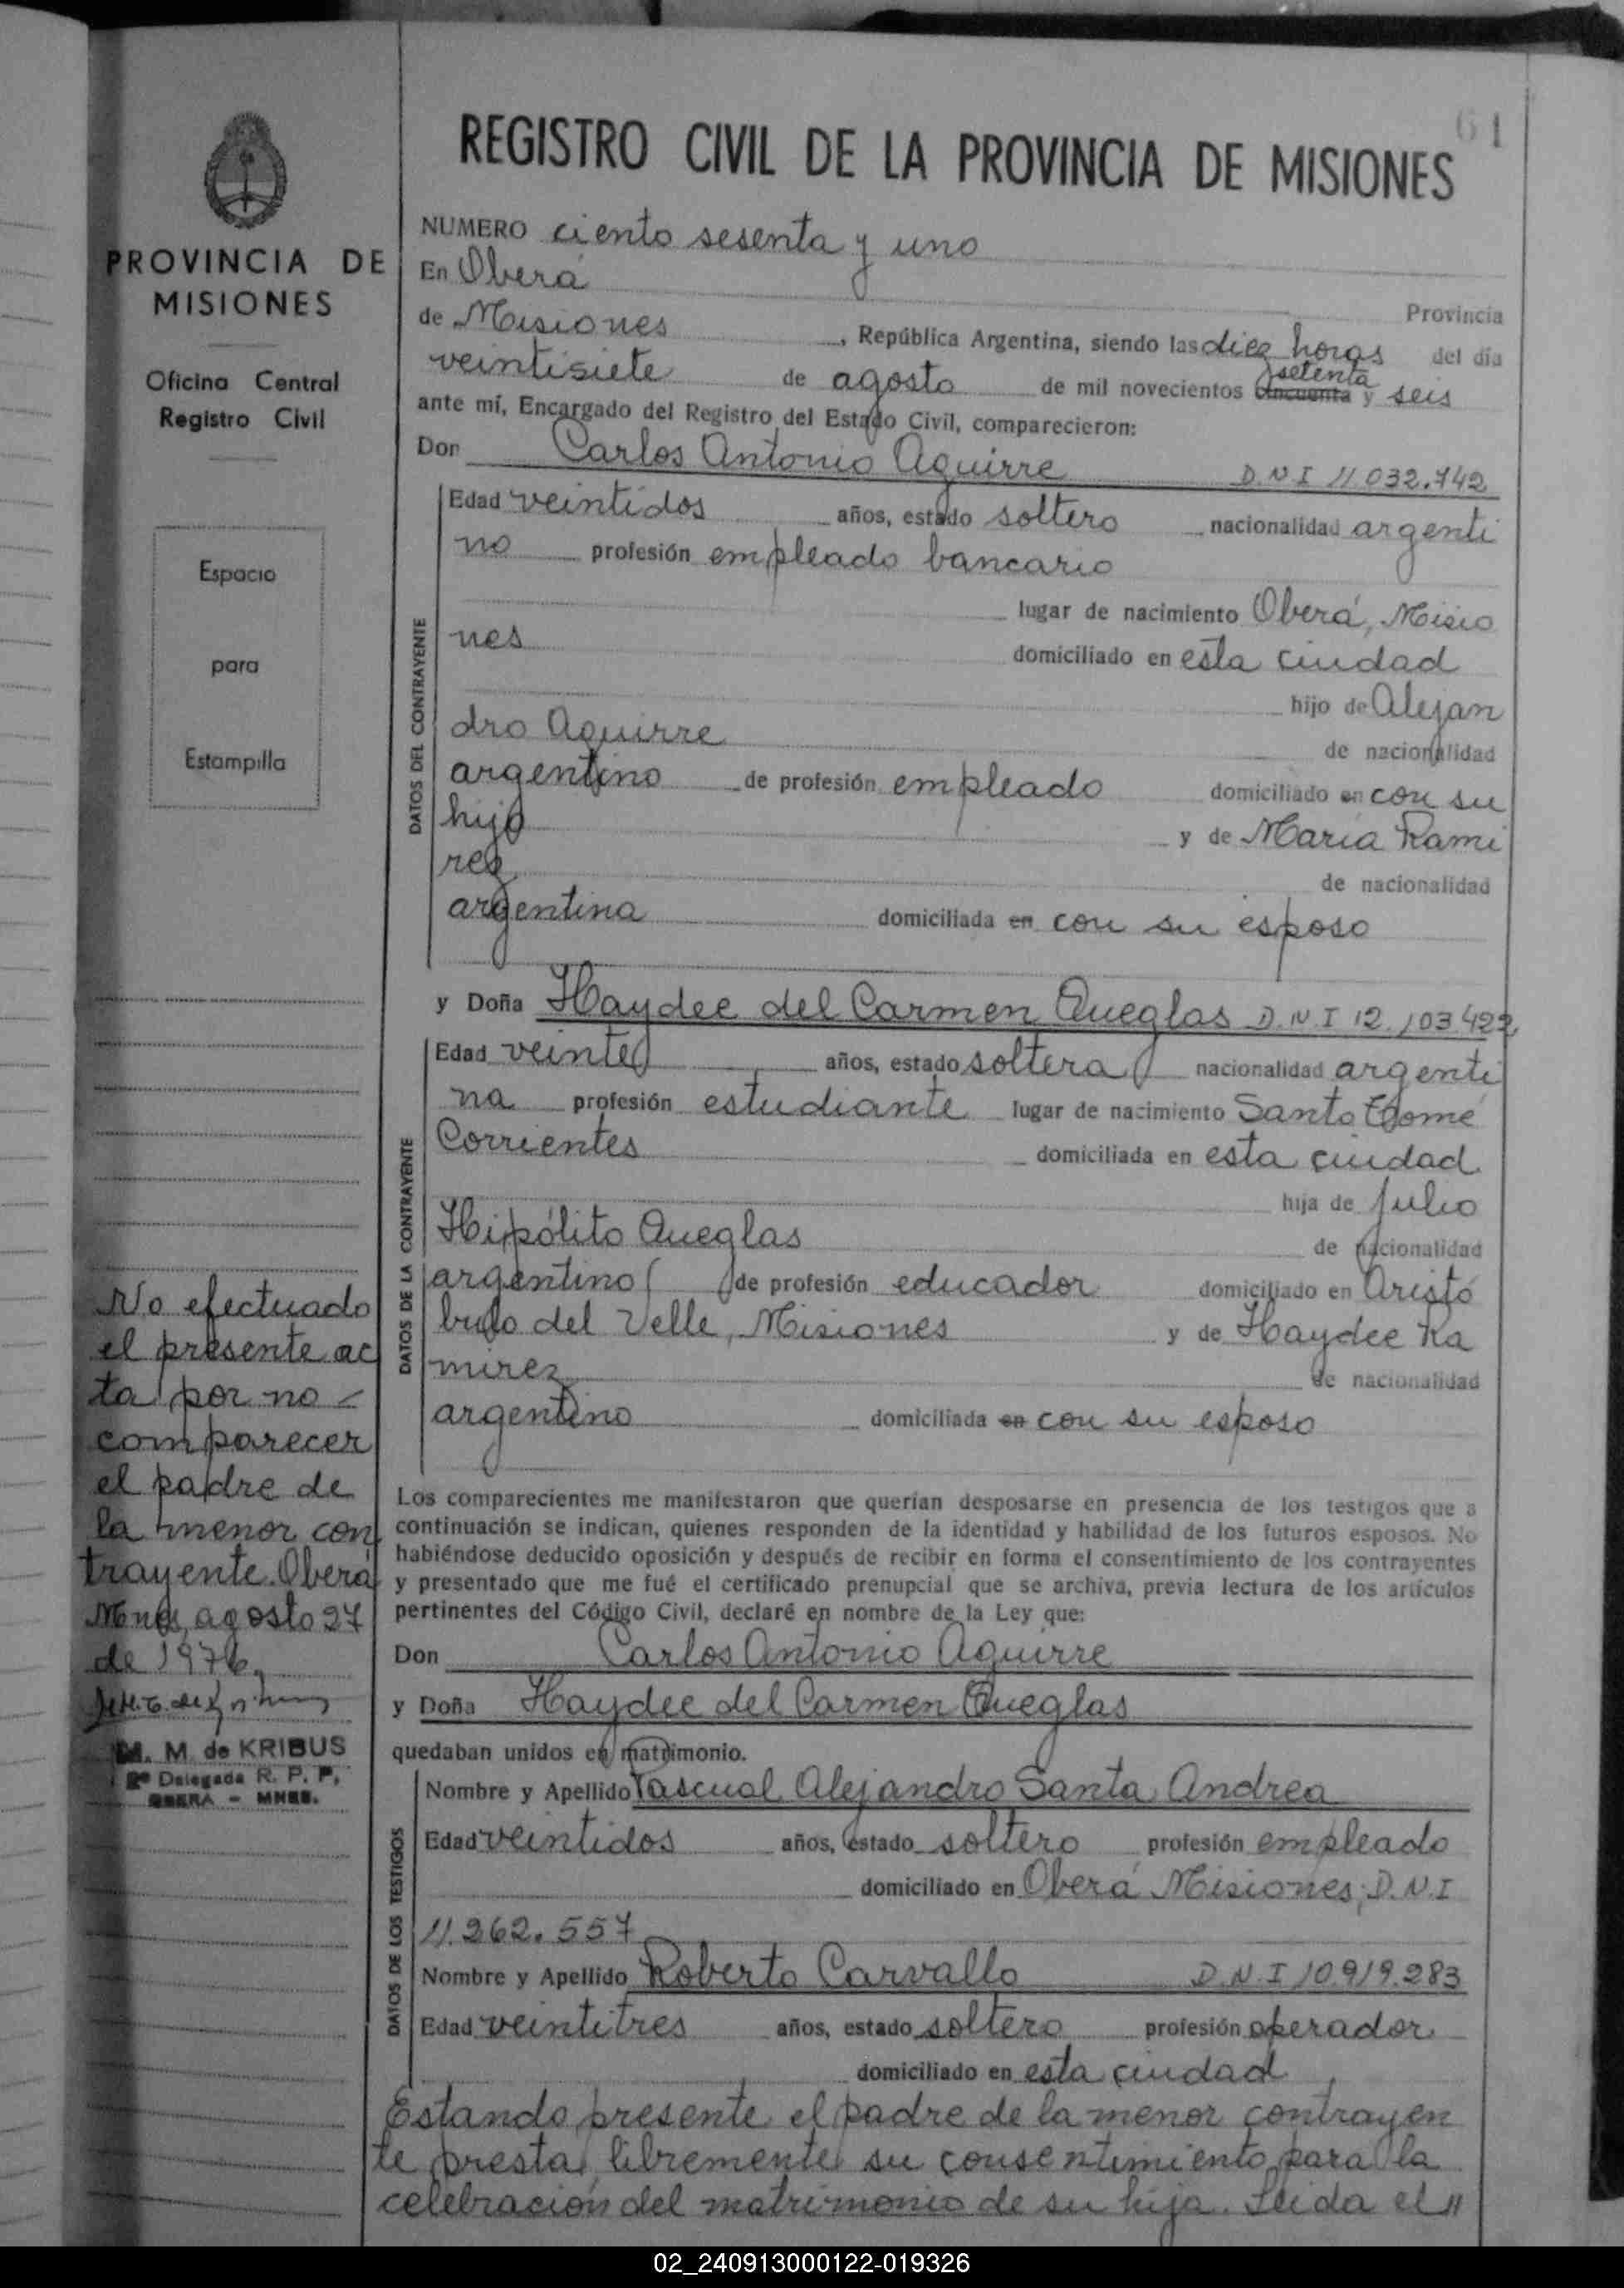 61
REGISTRO CIVIL DE LA PROVINCIA DE MISIONES
PROVINCIA DE
MISIONES
Oficina Central
Registro Civil
Espacio
para
Estampilla
NUMERO ciento sesenta y uno
En Oberá
Provincia
de Misiones, República Argentina, siendo las diez horas del día
setenta
veintisiete de agosto de mil novecientos cincuenta y seis
ante mí, Encargado del Registro del Estado Civil, comparecieron:
Don Carlos Antonio Aguirre D.N.I 11.032.742
DATOS DEL CONTRAYENTE
Edad veintidos años, estado soltero nacionalidad argenti
no profesión empleado bancario
lugar de nacimiento Oberá, Misio
nes domiciliado en esta ciudad
hijo de Alejan
dro Aguirre de nacionalidad
argentino de profesión empleado domiciliado en con su
hijo y de María Rami
rez de nacionalidad
argentina domiciliada en con su esposo
y Doña Haydee del Carmen Queglas D.N.I 12.103.422
DATOS DE LA CONTRAYENTE
Edad veinte años, estado soltera nacionalidad argenti
na profesión estudiante lugar de nacimiento Santo Tomé
Corrientes domiciliada en esta ciudad
hija de Julio
Hipólito Queglas de nacionalidad
argentino de profesión educador domiciliado en Aristó
bulo del Velle, Misiones y de Haydee Ra
mirez de nacionalidad
argentino domiciliada en con su esposo
Los comparecientes me manifestaron que querían desposarse en presencia de los testigos que a
continuación se indican, quienes responden de la identidad y habilidad de los futuros esposos. No
habiéndose deducido oposición y después de recibir en forma el consentimiento de los contrayentes
y presentado que me fué el certificado prenupcial que se archiva, previa lectura de los artículos
pertinentes del Código Civil, declaré en nombre de la Ley que:
Don Carlos Antonio Aguirre
y Doña Haydee del Carmen Queglas
quedaban unidos en matrimonio.
DATOS DE LOS TESTIGOS
Nombre y Apellido Pascual Alejandro Santa Andrea
Edad veintidos años, estado soltero profesión empleado
domiciliado en Oberá Misiones, D.N.I
11.262.557
Nombre y Apellido Roberto Carvallo D.N.I 10.919.283
Edad veintitres años, estado soltero profesión operador
domiciliado en esta ciudad
Estando presente el padre de la menor contrayen
te presta libremente su consentimiento para la
celebración del matrimonio de su hija. Leida el "
No efectuado
el presente ac
ta por no -
comparecer
el padre de
la menor con
trayente. Oberá
Mnes, agosto 27
de 1976.
M. M. de KRIBUS
2º Delegada R. P. P.
OBERA - MNES.
02_240913000122-019326